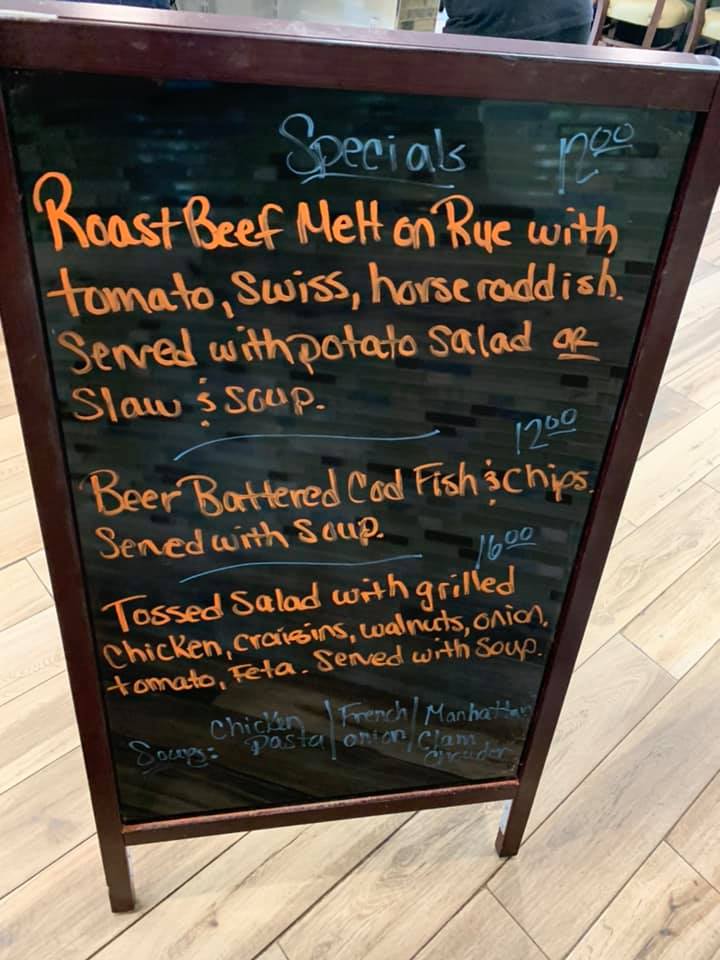 Specials 12.00
Roast Beef Melt on Rye with
tomato, Swiss, horseraddish.
Served with potato Salad OR
Slaw & Soup.
12.00
Beer Battered Cod Fish & Chips.
Served with Soup.
16.00
Tossed Salad with grilled
Chicken, craisins, walnuts, onion,
tomato, Feta. Served with Soup.
Soups: Chicken Pasta | French onion | Manhattan Clam